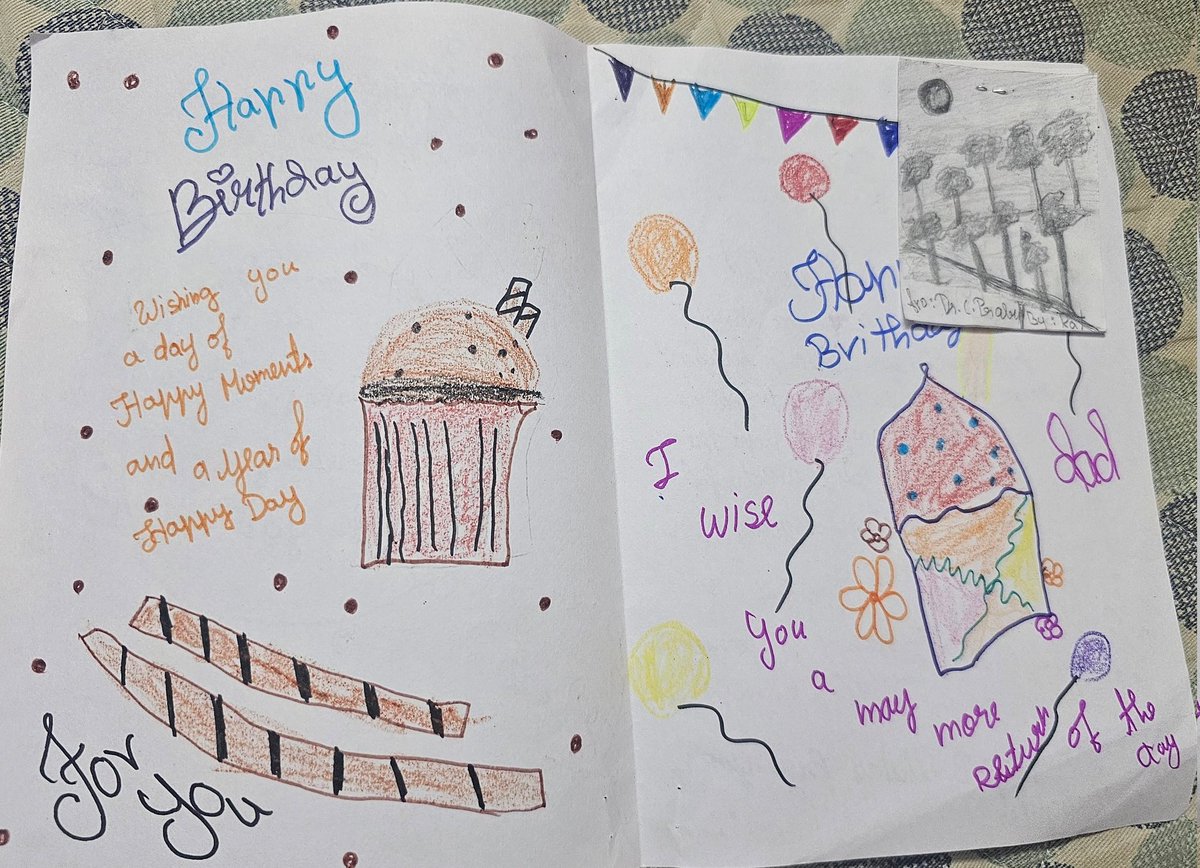 Happy
Birthday
Wishing you
a day of
Happy Moments
and a year of
Happy Day
For
you
Happ
Brithday
Dad
I
wise
you
a
may
more
Return
of the
day
By: